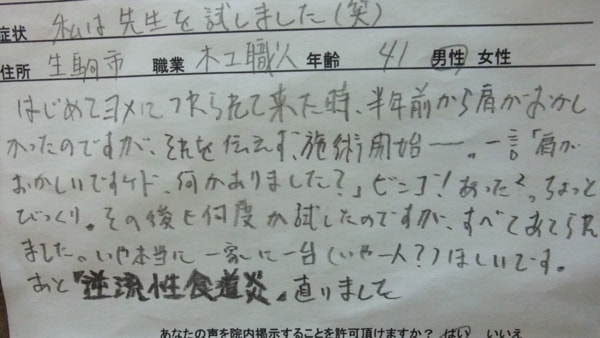 症状 私は先生を試しました(笑)
住所 生駒市 職業 木工職人 年齢 41 男性 女性
はじめてヨメにつれられて来た時、半年前から肩がおかし
かったのですが、それを伝えず、施術開始ーー。一言「肩が
おかしいですケド、何かありました?」ビンゴ!あった²。ちょっと
びっくり。その後も何度か試したのですが、すべてあてられ
ました。いや本当に一家に一台(いや一人?)ほしいです。
あと『逆流性食道炎』直りました
あなたの声を院内掲示することを許可頂けますか? はい いいえ